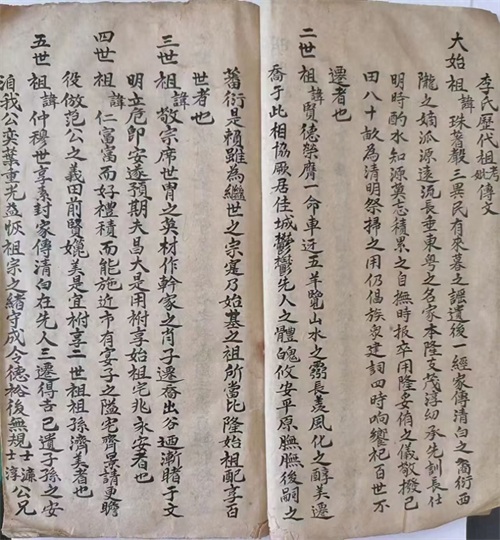 李氏歷代祖考妣傳文
大始祖諱珠著轂三異民有來暮之謳遺後一經家傳清白之裔衍西
隴之嫡派源遠流長垂東粵之名家本隆支茂淳幼承先訓長仕
明時酌水知源莫志積累之自撫時报卒用隆妥侑之儀敬撥己
田八十畝為清明祭掃之用仍倡族衆建祠四時响饗祀百世不
遷者也
二世祖諱賢德榮膺一命車近五羊覽山水之靈長羨風化之醇美遷
喬于此相協厥居佳城鬱鬱先人之體魄攸安平原膴膴後嗣之
蕃衍是賴雖為繼世之宗寔乃始基之祖所當比隆始祖配享百
世者也
三世祖諱敬宗席世胄之英材作幹家之肖子遷喬出谷迺漸睹于文
明立卮卹安遂預期夫昌大是用樹享始祖宅兆永安者也
四世祖諱仁富富而好禮積而能施近市有宴子之隘宅齊景請更贍
役倣范公之義田前賢媲美是宜樹享二世祖祖孫濟美者也
五世祖諱仲穆世享素封家傳清白在先人三遷得吉已遺子孫之安
洎我公奕葉重光益恢祖宗之緒守成令德裕後無規士濂士淳公兄